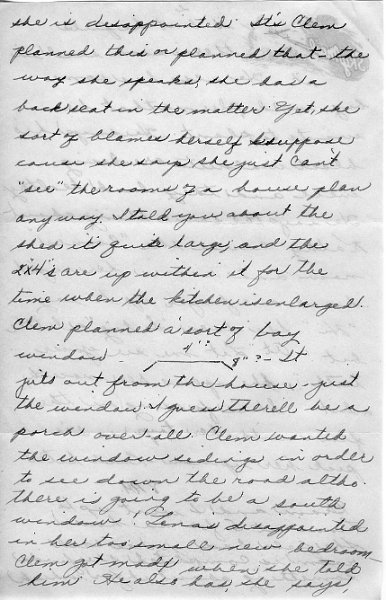 she is disappointed. It's Clem
planned this or planned that - the
way she speaks, she has a
back seat in the matter. Yet, she
sort of blames herself I suppose
cause she says she just can't
"see" the rooms of a house plan
anyway. I told you about the
shed it quite large, and the
2x4's are up within it for the
time when the kitchen is enlarged.
Clem planned a sort of bay
4"?
window 9"? - It
juts out from the house - just
the window. I guess therell be a
porch over all. Clem wanted
the window sedings in order
to see down the road altho.
there is going to be a south
window! Lena's disappointed
in her too small new bedroom.
Clem got mad when she told
him. He also has, she says,